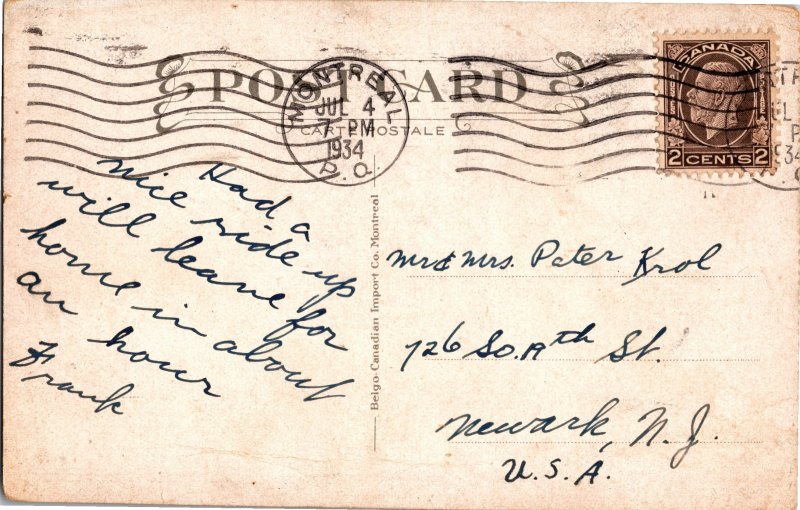 POST CARD
CARTE POSTALE
MONTREAL
JUL 4
7 PM
1934
P.Q.
CANADA
2 CENTS 2
Had a
nice ride up
will leave for
home in about
an hour
Frank
Belgo-Canadian Import Co. Montreal
Mr & Mrs. Pater Krol
726 So. St.
Newark, N.J.
U.S.A.